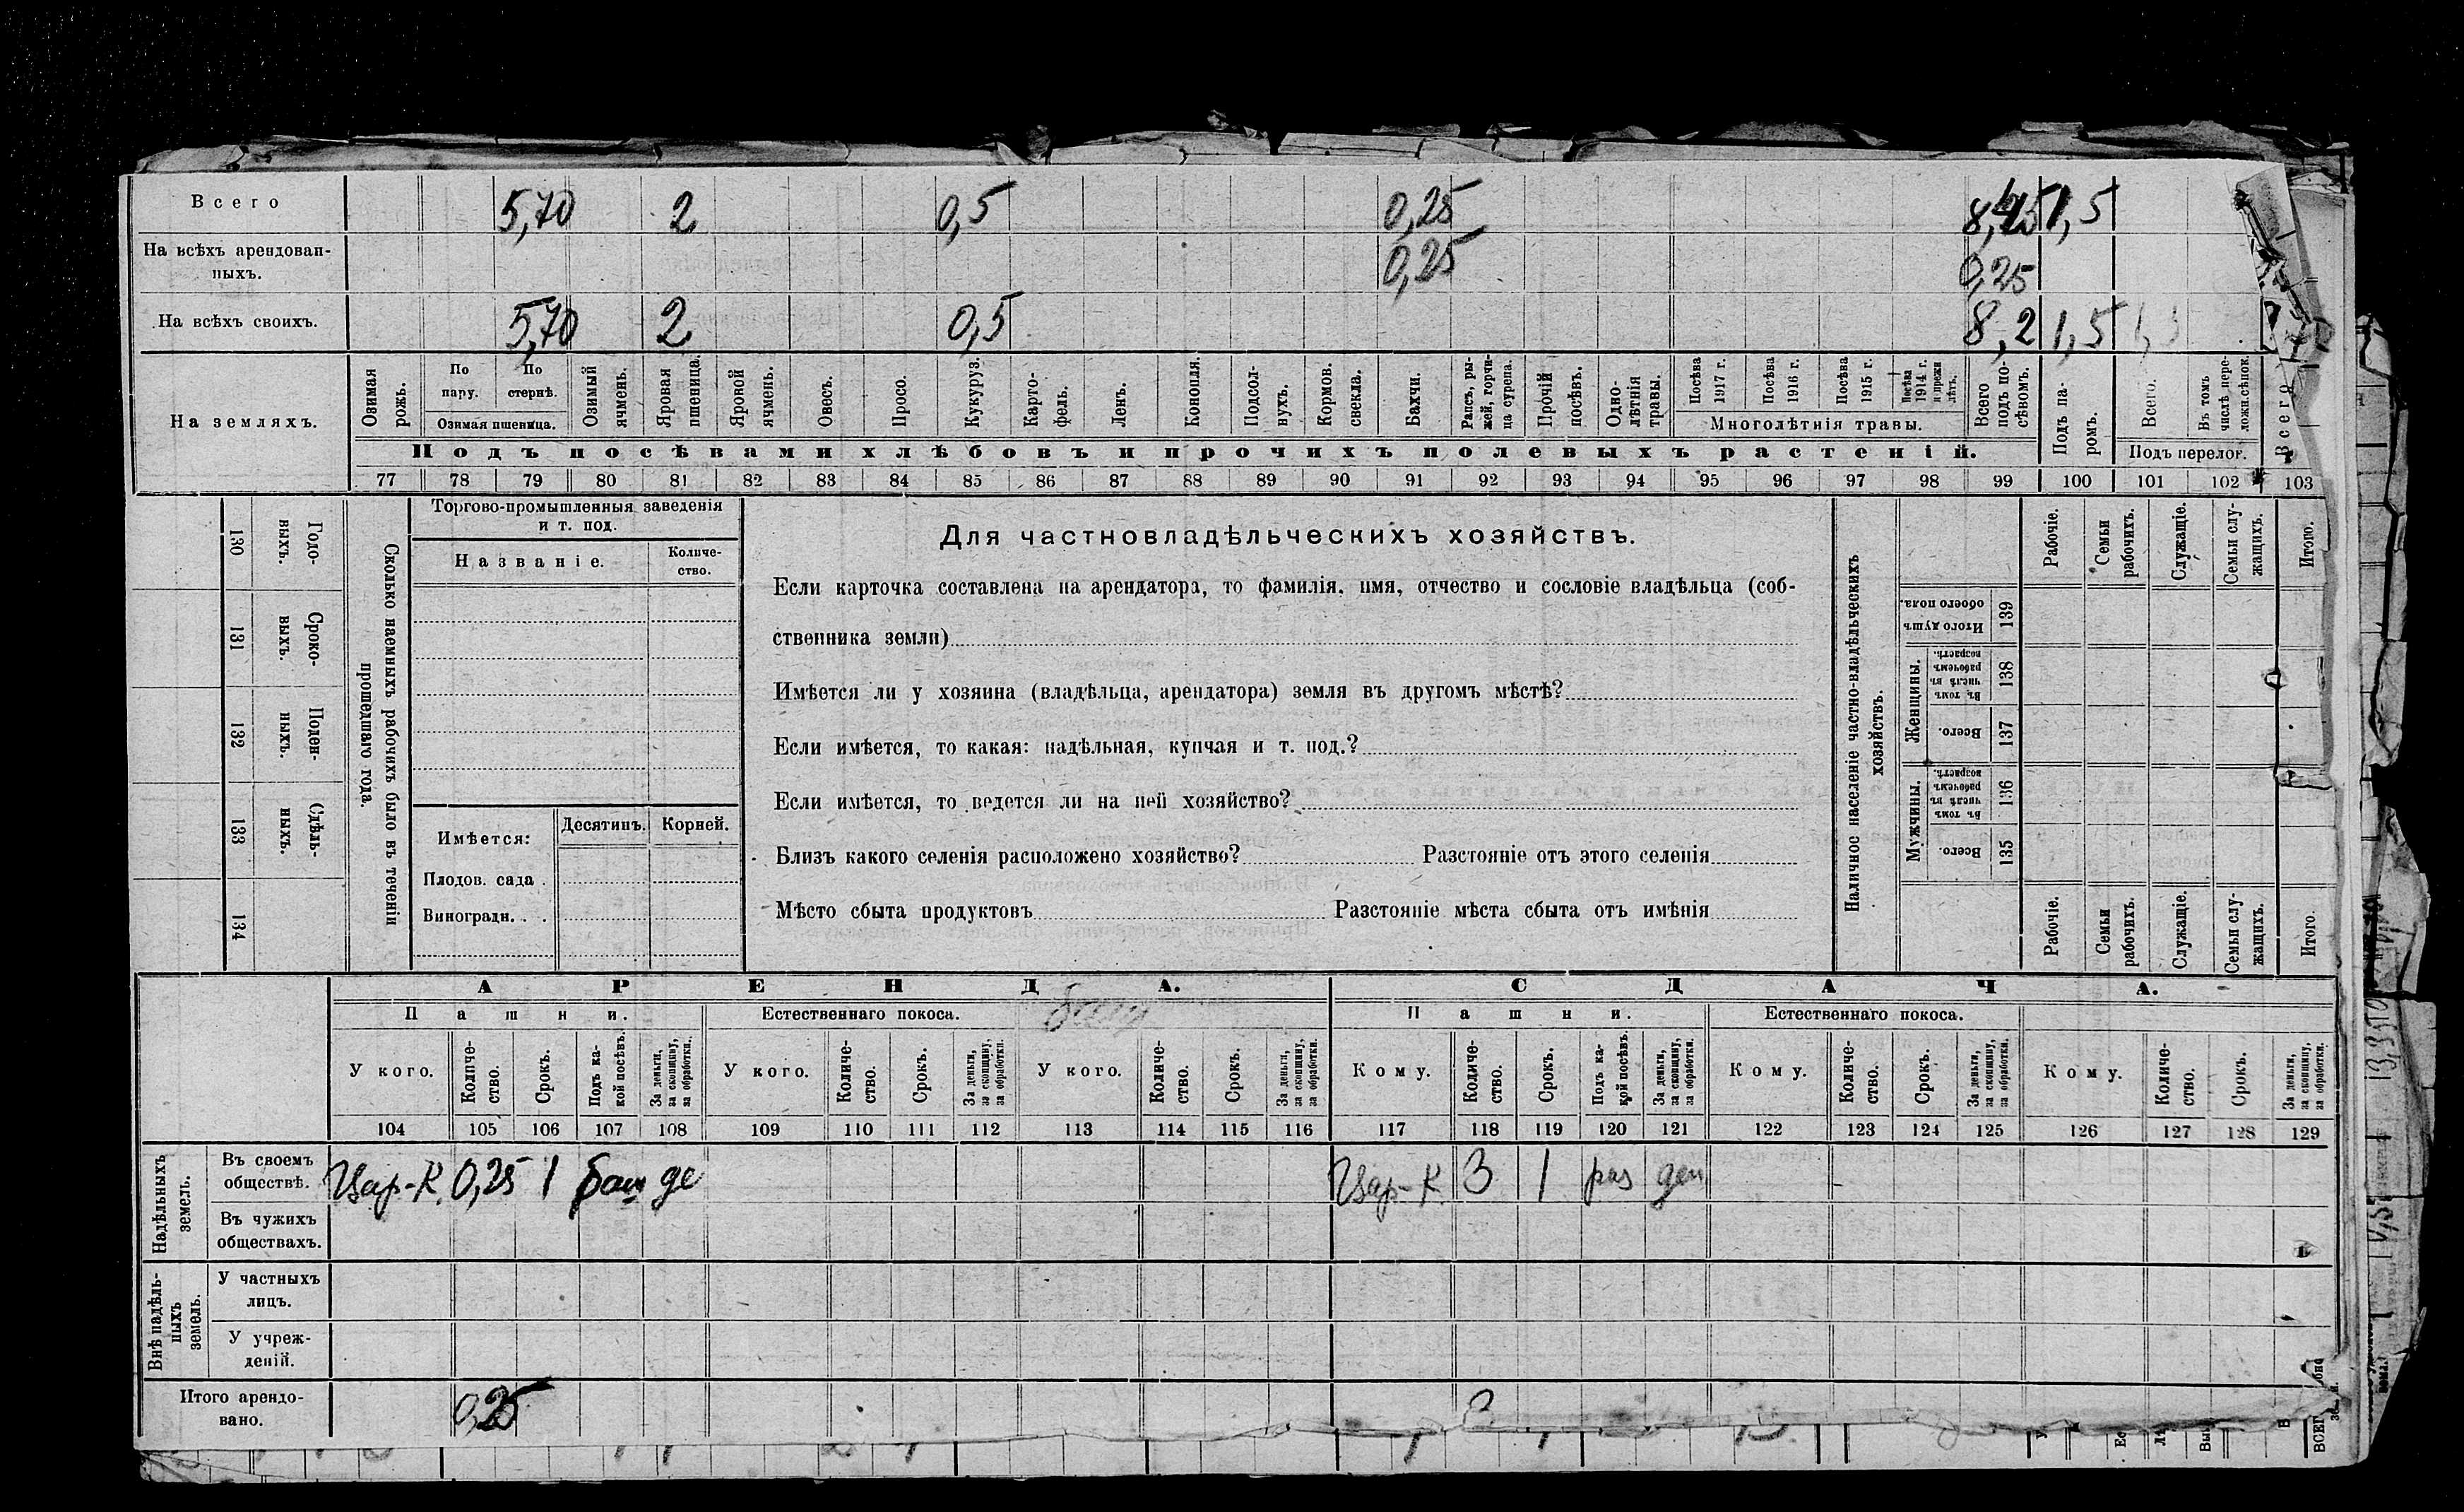 Всего 5,70 2 0,5 0,25 8,45 1,5
На всѣхъ арендован-
ныхъ. 0,25 0,25
На всѣхъ своихъ. 5,70 2 0,5 8,2 1,5
На земляхъ.
Озимая рожь.
По пару.
По стернѣ.
Озимая пшеница.
Озимый ячмень.
Яровая пшеница.
Яровой ячмень.
Овесъ.
Просо.
Кукуруз.
Карто-
фель.
Ленъ.
Конопля.
Подсол-
нухъ.
Кормов.
свекла.
Бахчи.
Рапсъ, ры-
жей, горчи-
ца сурепа.
Прочій
посѣвъ.
Одно-
лѣтнія
травы.
Посѣва
1917 г.
Посѣва
1916 г.
Посѣва
1915 г.
Посѣва
1914 г.
и прежн
лѣтъ.
Многолѣтнія травы.
Всего
подъ по-
сѣвомъ.
Подъ па-
ромъ.
Всего.
Въ томъ
числѣ пере-
ложн.сѣнок.
Подъ перелог.
Всего
Подъ посѣвами хлѣбовъ и прочихъ полевыхъ растеній.
77 78 79 80 81 82 83 84 85 86 87 88 89 90 91 92 93 94 95 96 97 98 99 100 101 102 103
130 Годо-
выхъ.
131 Сроко-
выхъ.
132 Поден-
ныхъ.
133 Сдѣль-
ныхъ.
134
Сколько наемныхъ рабочихъ было въ теченіи
прошедшаго года.
Торгово-промышленныя заведенія
и т. под.
Названіе.
Количе-
ство.
Имѣется:
Десятинъ.
Корней.
Плодов. сада .
Виноградн. . .
Для частновладѣльческихъ хозяйствъ.
Если карточка составлена на арендатора, то фамилія, имя, отчество и сословіе владѣльца (соб-
ственника земли)
Имѣется ли у хозяина (владѣльца, арендатора) земля въ другомъ мѣстѣ?
Если имѣется, то какая: надѣльная, купчая и т. под.?
Если имѣется, то ведется ли на ней хозяйство?
Близъ какого селенія расположено хозяйство? Разстояніе отъ этого селенія
Мѣсто сбыта продуктовъ Разстояніе мѣста сбыта отъ имѣнія
Наличное населеніе частно-владѣльческихъ
хозяйствъ.
Рабочіе.
Семьи
рабочихъ.
Служащіе.
Семьи слу-
жащихъ.
Итого.
Итого душъ
обоего пола.
139
Женщины.
Въ томъ
числѣ въ
рабочемъ
возрастѣ.
138
Всего.
137
Мужчины.
Въ томъ
числѣ въ
рабочемъ
возрастѣ.
136
Всего.
135
Рабочіе.
Семьи
рабочихъ.
Служащіе.
Семьи слу-
жащихъ.
Итого.
АРЕНДА.
СДАЧА.
Пашни.
Естественнаго покоса.
Пашни.
Естественнаго покоса.
У кого.
Количе-
ство.
Срокъ.
Подъ ка-
кой посѣвъ.
За деньги,
за скопщину,
за обработки.
У кого.
Количе-
ство.
Срокъ.
За деньги,
за скопщину,
за обработки.
У кого.
Количе-
ство.
Срокъ.
За деньги,
за скопщину,
за обработки.
Кому.
Количе-
ство.
Срокъ.
Подъ ка-
кой посѣвъ
За деньги,
за скопщину,
за обработки.
Кому.
Количе-
ство.
Срокъ.
За деньги,
за скопщину,
за обработки.
Кому.
Количе-
ство.
Срокъ.
За деньги,
за скопщину,
за обработки.
104 105 106 107 108 109 110 111 112 113 114 115 116 117 118 119 120 121 122 123 124 125 126 127 128 129
Надѣльныхъ
земель.
Въ своемъ
обществѣ. Цар-К. 0,25 1 баш де Цар-К. 3 1 раз ден
Въ чужихъ
обществахъ.
Внѣ надѣль-
ныхъ
земель.
У частныхъ
лицъ.
У учреж-
деній.
Итого арендо-
вано. 0,25